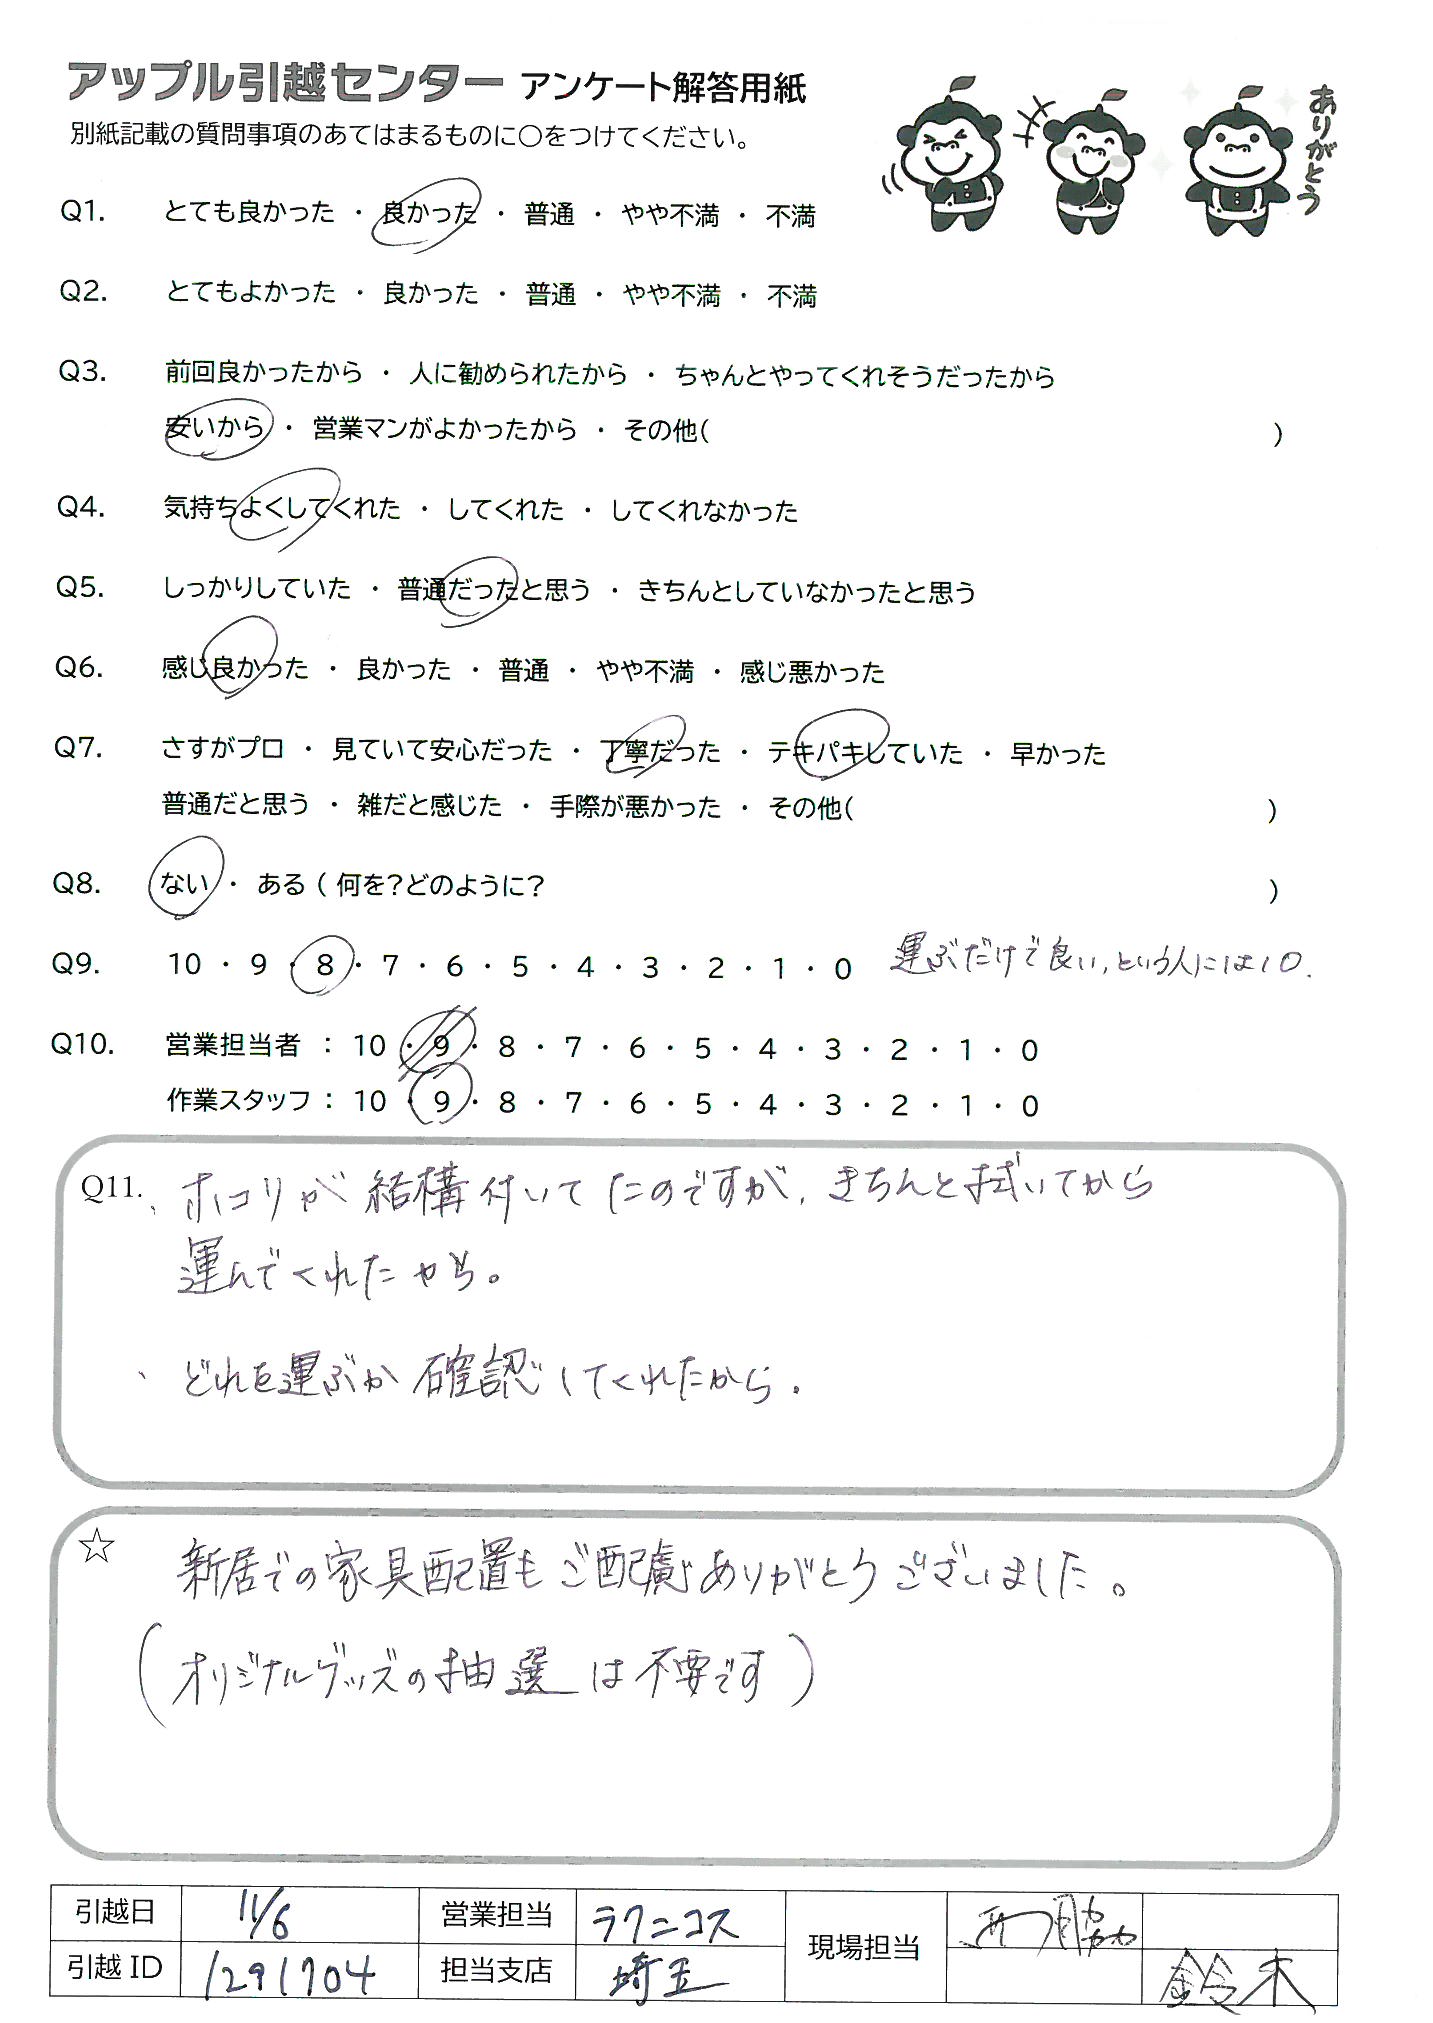 アップル引越センター アンケート解答用紙
別紙記載の質問事項のあてはまるものに○をつけてください。
ありがとう
Q1. とても良かった ・ 良かった ・ 普通 ・ やや不満 ・ 不満
Q2. とてもよかった ・ 良かった ・ 普通 ・ やや不満 ・ 不満
Q3. 前回良かったから ・ 人に勧められたから ・ ちゃんとやってくれそうだったから
安いから ・ 営業マンがよかったから ・ その他( )
Q4. 気持ちよくしてくれた ・ してくれた ・ してくれなかった
Q5. しっかりしていた ・ 普通だったと思う ・ きちんとしていなかったと思う
Q6. 感じ良かった ・ 良かった ・ 普通 ・ やや不満 ・ 感じ悪かった
Q7. さすがプロ ・ 見ていて安心だった ・ 丁寧だった ・ テキパキしていた ・ 早かった
普通だと思う ・ 雑だと感じた ・ 手際が悪かった ・ その他( )
Q8. ない ・ ある ( 何を?どのように? )
Q9. 10 ・ 9 ・ 8 ・ 7 ・ 6 ・ 5 ・ 4 ・ 3 ・ 2 ・ 1 ・ 0 運ぶだけで良い、という人には10.
Q10. 営業担当者 : 10 ・ 9 ・ 8 ・ 7 ・ 6 ・ 5 ・ 4 ・ 3 ・ 2 ・ 1 ・ 0
作業スタッフ : 10 ・ 9 ・ 8 ・ 7 ・ 6 ・ 5 ・ 4 ・ 3 ・ 2 ・ 1 ・ 0
Q11. 、ホコリが結構付いてたのですが、きちんと拭いてから
運んでくれたから。
、どれを運ぶか確認してくれたから.
☆ 新居での家具配置もご配慮ありがとうございました。
(オリジナルグッズの抽選は不要です)
引越日 11/6 営業担当 ラクニコス 現場担当 西脇
引越ID 1291704 担当支店 埼玉 鈴木